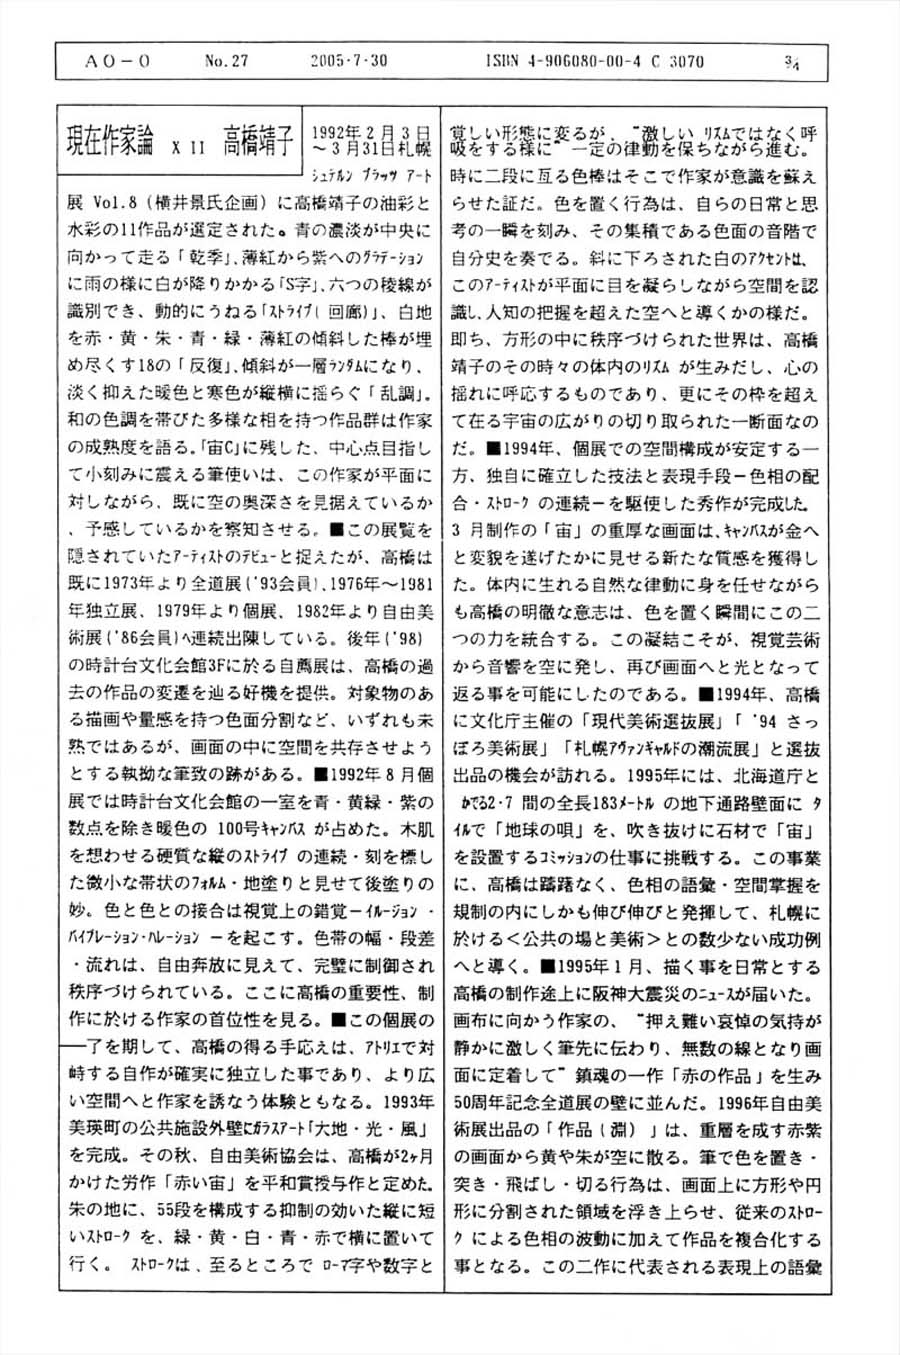 AO-0 No.27 2005・7・30 ISBN 4-906080-00-4 C 3070 3/4
現在作家論 XII 高橋靖子
1992年2月3日
～3月31日札幌
ｼｭﾃﾙﾝ ﾌﾟﾗｯﾂ ｱｰﾄ
展 Vol.8（横井景氏企画）に高橋靖子の油彩と
水彩の11作品が選定された。青の濃淡が中央に
向かって走る「乾季」、薄紅から紫へのｸﾞﾗﾃﾞｰｼｮﾝ
に雨の様に白が降りかかる「S字」、六つの稜線が
識別でき、動的にうねる「ｽﾄﾗｲﾌﾟ(回廊)」、白地
を赤・黄・朱・青・緑・薄紅の傾斜した棒が埋
め尽くす18の「反復」、傾斜が一層ﾗﾝﾀﾞﾑになり、
淡く抑えた暖色と寒色が縦横に揺らぐ「乱調」。
和の色調を帯びた多様な相を持つ作品群は作家
の成熟度を語る。「宙C」に残した、中心点目指し
て小刻みに震える筆使いは、この作家が平面に
対しながら、既に空の奥深さを見据えているか
、予感しているかを察知させる。■この展覧を
隠されていたｱｰﾃｨｽﾄのﾃﾞﾋﾞｭｰと捉えたが、高橋は
既に1973年より全道展('93会員)、1976年～1981
年独立展、1979年より個展、1982年より自由美
術展('86会員)へ連続出陳している。後年('98)
の時計台文化会館3Fに於る自薦展は、高橋の過
去の作品の変遷を辿る好機を提供。対象物のあ
る描画や量感を持つ色面分割など、いずれも未
熟ではあるが、画面の中に空間を共存させよう
とする執拗な筆致の跡がある。■1992年8月個
展では時計台文化会館の一室を青・黄緑・紫の
数点を除き暖色の 100号ｷｬﾝﾊﾞｽ が占めた。木肌
を想わせる硬質な縦のｽﾄﾗｲﾌﾟ の連続・刻を標し
た微小な帯状のﾌｫﾙﾑ・地塗りと見せて後塗りの
妙。色と色との接合は視覚上の錯覚－ｲﾙｰｼﾞｮﾝ・
ﾊﾞｲﾌﾞﾚｰｼｮﾝ・ﾊﾚｰｼｮﾝ －を起こす。色帯の幅・段差
・流れは、自由奔放に見えて、完璧に制御され
秩序づけられている。ここに高橋の重要性、制
作に於ける作家の首位性を見る。■この個展の
了を期して、高橋の得る手応えは、ｱﾄﾘｴで対
峙する自作が確実に独立した事であり、より広
い空間へと作家を誘なう体験ともなる。1993年
美瑛町の公共施設外壁にｶﾞﾗｽｱｰﾄ「大地・光・風」
を完成。その秋、自由美術協会は、高橋が2ヶ月
かけた労作「赤い宙」を平和賞授与作と定めた。
朱の地に、55段を構成する抑制の効いた縦に短
いｽﾄﾛｰｸ を、緑・黄・白・青・赤で横に置いて
行く。 ｽﾄﾛｰｸは、至るところで ﾛｰﾏ字や数字と
覚しい形態に変るが、“激しい ﾘｽﾞﾑではなく呼
吸をする様に”一定の律動を保ちながら進む。
時に二段に亙る色棒はそこで作家が意識を蘇え
らせた証だ。色を置く行為は、自らの日常と思
考の一瞬を刻み、その集積である色面の音階で
自分史を奏でる。斜に下ろされた白のｱｸｾﾝﾄは、
このｱｰﾃｨｽﾄが平面に目を凝らしながら空間を認
識し、人知の把握を超えた空へと導くかの様だ。
即ち、方形の中に秩序づけられた世界は、高橋
靖子のその時々の体内のﾘｽﾞﾑ が生みだし、心の
揺れに呼応するものであり、更にその枠を超え
て在る宇宙の広がりの切り取られた一断面なの
だ。■1994年、個展での空間構成が安定する一
方、独自に確立した技法と表現手段－色相の配
合・ｽﾄﾛｰｸ の連続－を駆使した秀作が完成した。
3月制作の「宙」の重厚な画面は、ｷｬﾝﾊﾞｽが金へ
と変貌を遂げたかに見せる新たな質感を獲得し
た。体内に生れる自然な律動に身を任せながら
も高橋の明徹な意志は、色を置く瞬間にこの二
つの力を統合する。この凝結こそが、視覚芸術
から音響を空に発し、再び画面へと光となって
返る事を可能にしたのである。■1994年、高橋
に文化庁主催の「現代美術選抜展」「'94 さっ
ぽろ美術展」「札幌ｱｳﾞｧﾝｷﾞｬﾙﾄﾞの潮流展」と選抜
出品の機会が訪れる。1995年には、北海道庁と
かでる2・7 間の全長183ﾒｰﾄﾙ の地下通路壁面に ﾀ
ｲﾙで「地球の唄」を、吹き抜けに石材で「宙」
を設置するｺﾐｯｼｮﾝの仕事に挑戦する。この事業
に、高橋は躊躇なく、色相の語彙・空間掌握を
規制の内にしかも伸び伸びと発揮して、札幌に
於ける＜公共の場と美術＞との数少ない成功例
へと導く。■1995年1月、描く事を日常とする
高橋の制作途上に阪神大震災のﾆｭｰｽが届いた。
画布に向かう作家の、“押え難い哀悼の気持が
静かに激しく筆先に伝わり、無数の線となり画
面に定着して”鎮魂の一作「赤の作品」を生み
50周年記念全道展の壁に並んだ。1996年自由美
術展出品の「作品(淵)」は、重層を成す赤紫
の画面から黄や朱が空に散る。筆で色を置き・
突き・飛ばし・切る行為は、画面上に方形や円
形に分割された領域を浮き上らせ、従来のｽﾄﾛｰ
ｸ による色相の波動に加えて作品を複合化する
事となる。この二作に代表される表現上の語彙